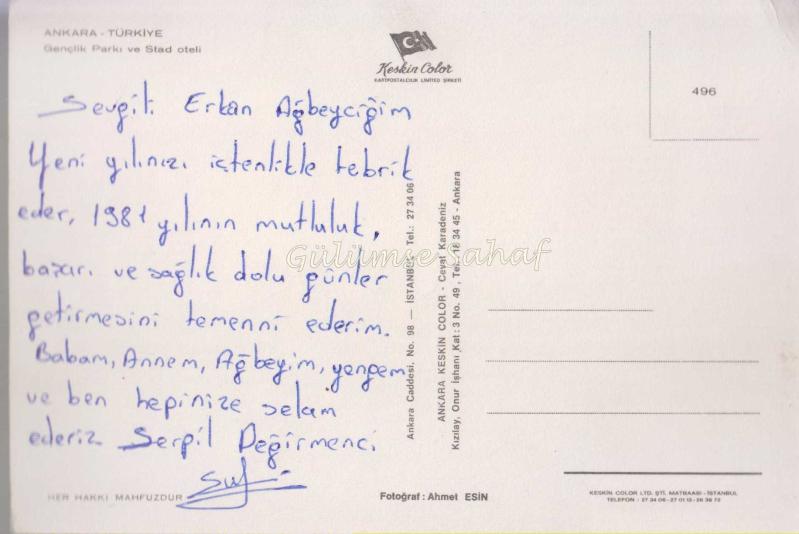 ANKARA - TÜRKİYE
Gençlik Parkı ve Stad oteli
Keskin Color
KARTPOSTALCILIK LİMİTED ŞİRKETİ
496
Sevgili Erkan Ağbeyciğim
Yeni yılınızı içtenlikle tebrik
eder, 1981 yılının mutluluk,
başarı ve sağlık dolu günler
getirmesini temenni ederim.
Babam, Annem, Ağbeyim, yengem
ve ben hepinize selam
ederiz Serpil Değirmenci
Gülümse Sahaf
Ankara Caddesi, No. 98 — İSTANBUL Tel.: 27 34 06
ANKARA KESKİN COLOR - Cevat Karadeniz
Kızılay, Onur İşhanı Kat: 3 No. 49, Tel.: 18 34 45 - Ankara
HER HAKKI MAHFUZDUR
Fotoğraf : Ahmet ESİN
KESKİN COLOR LTD. ŞTİ. MATBAASI - İSTANBUL
TELEFON : 27 34 06 - 27 01 13 - 26 36 72